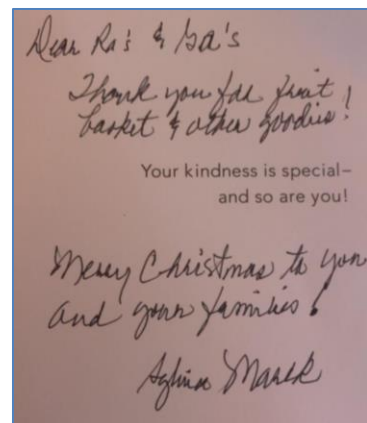 Dear Ra's & Ga's
Thank you for fruit
basket & other goodies!
Your kindness is special–
and so are you!
Merry Christmas to you
and your families!
Marek